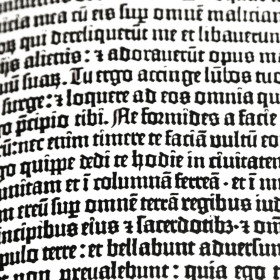 icia mea cū eis sup omnē malician
os qui dereliquerūt me et libauerun
ijs alienis: ⁊ adorauerūt opus ma
nuū suaꝝ. Tu ergo accinge lūbos tuos
surge: ⁊ loquere ad eos omnia qu
go p̄cipio tibi. Ne formides a facie
nec enim timere te faciā vultū eo
go quippe dedi te hodie in ciuitatem
unitam et ī columnā ferreā· et ī m
m ereū sup omnē terrā regibus iud
incipibus eius ⁊ sacerdotibꝫ· ⁊ om
pulo terre: et bellabunt aduersum
et non preualebunt: quia ego